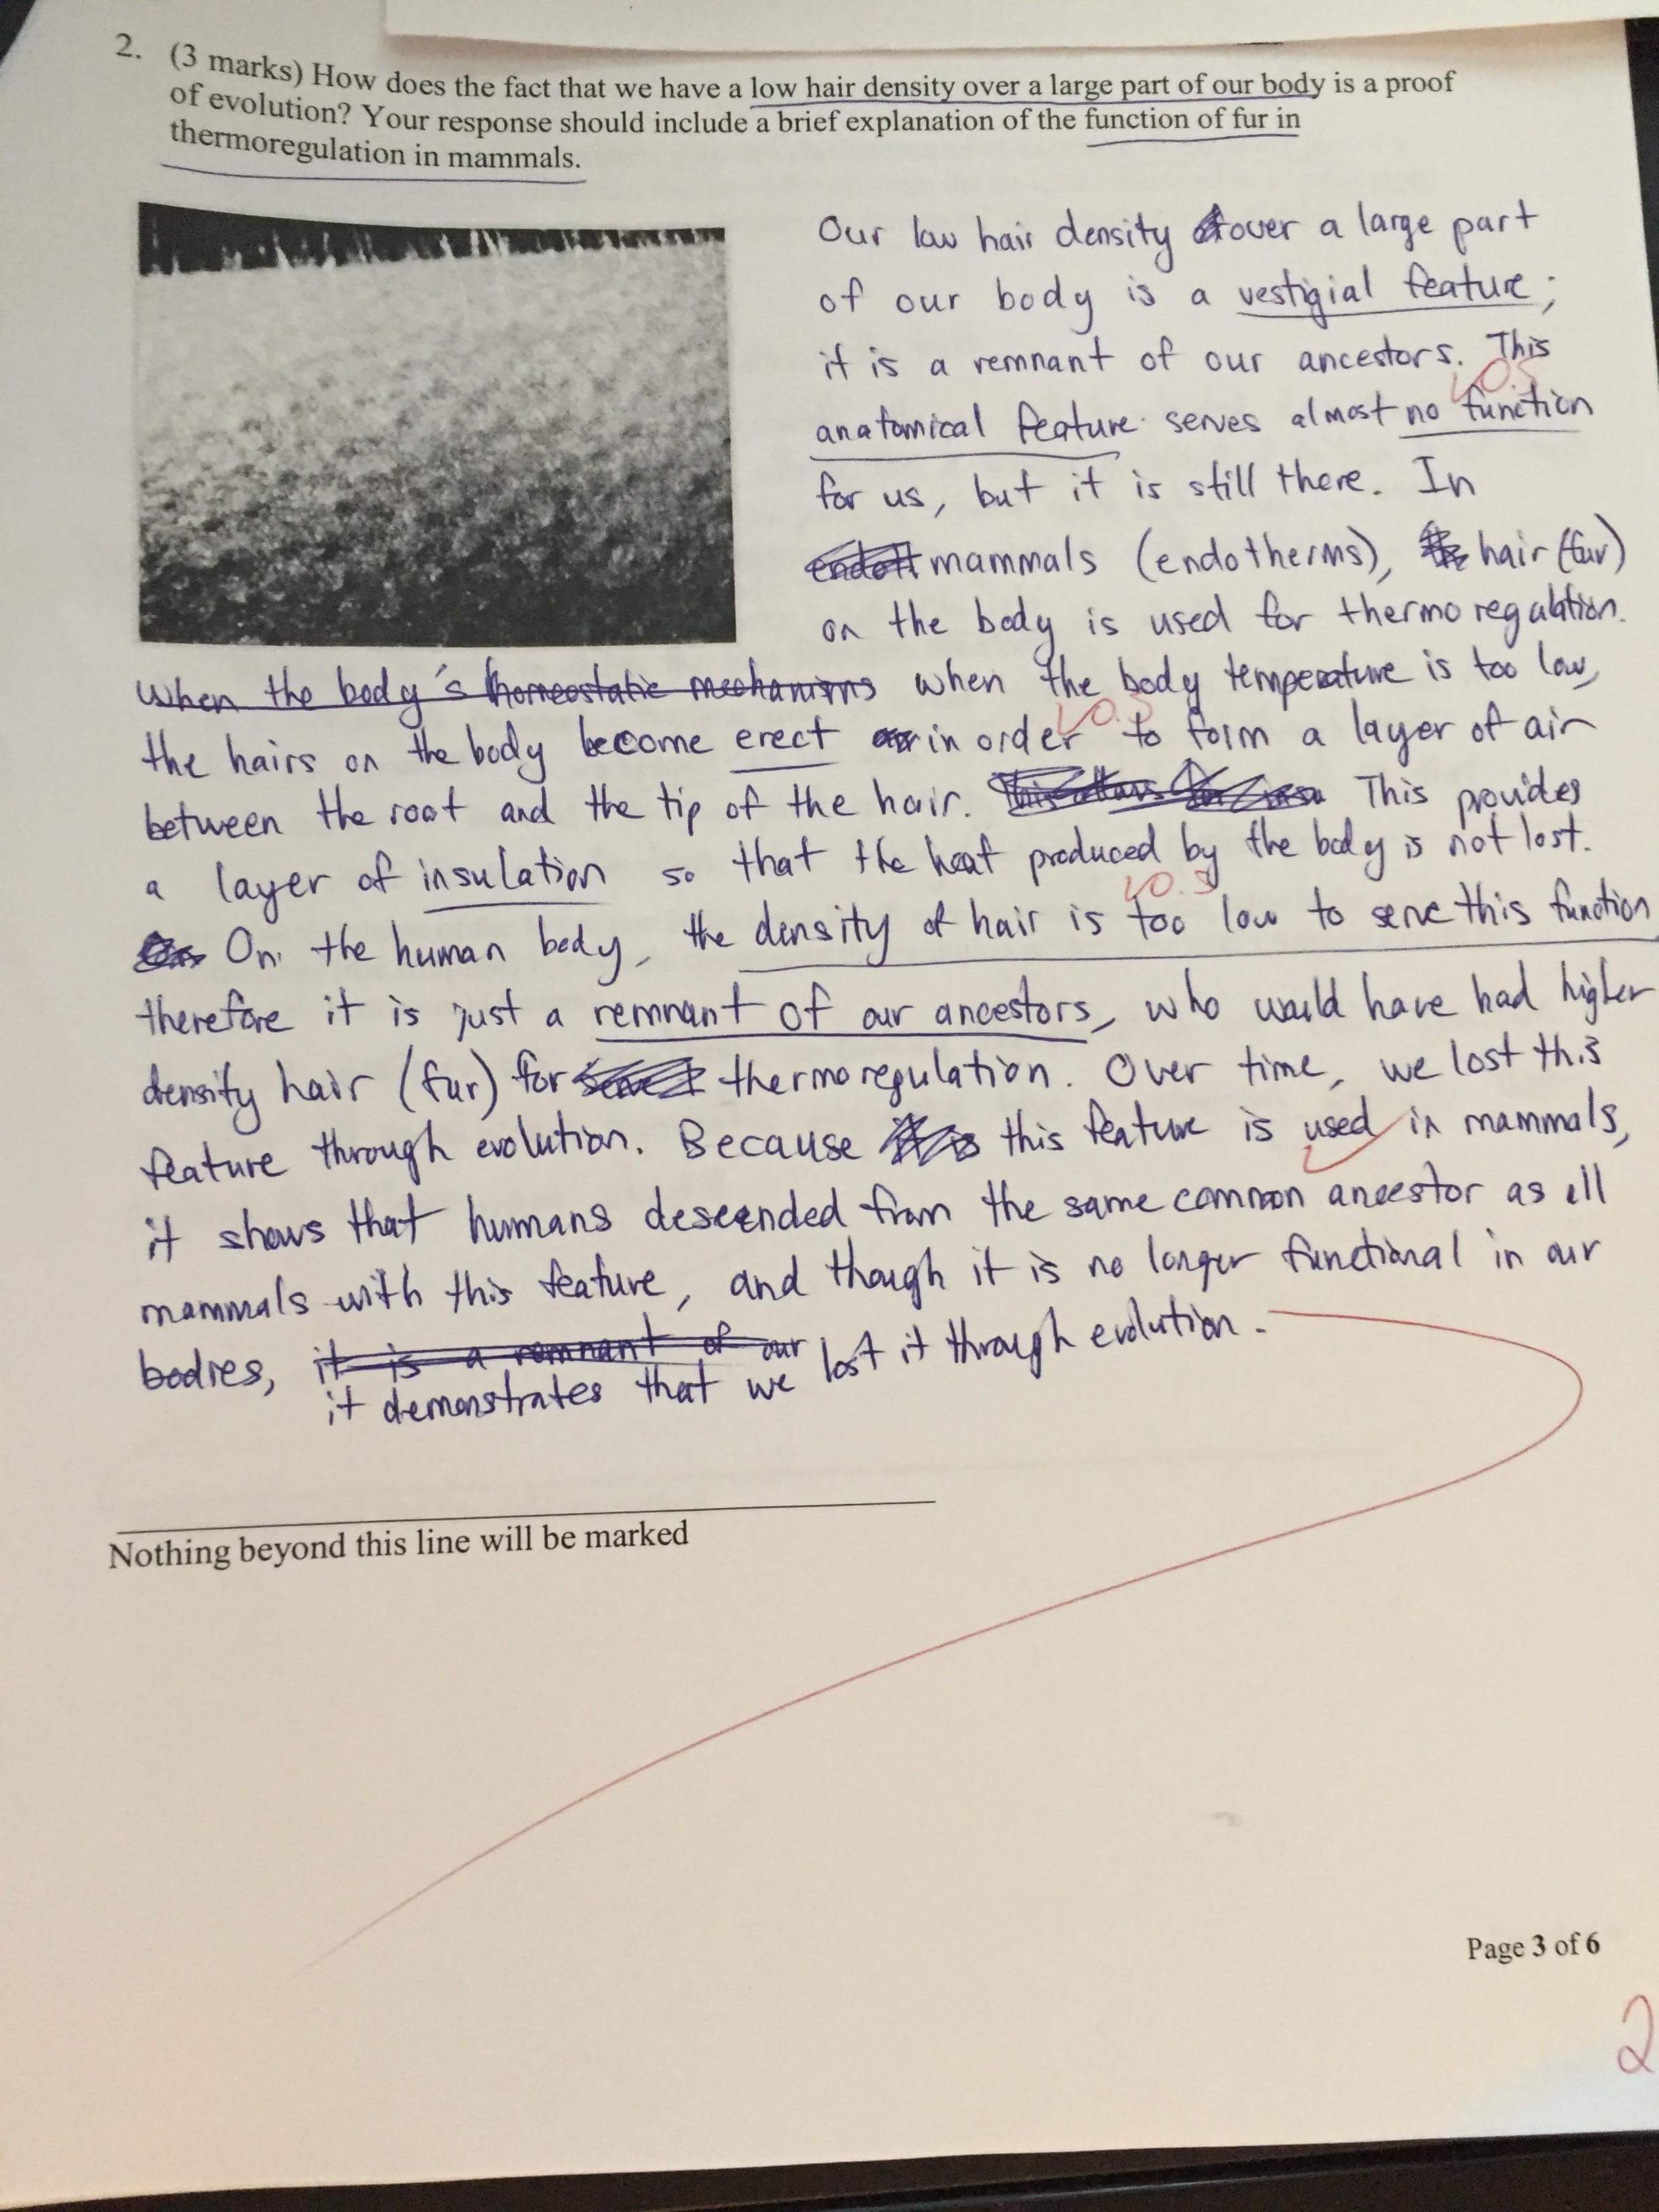 2. (3 marks) How does the fact that we have a low hair density over a large part of our body is a proof
of evolution? Your response should include a brief explanation of the function of fur in
thermoregulation in mammals.
Our low hair density over a large part
of our body is a vestigial feature;
it is a remnant of our ancestors. This
0.5
anatomical feature serves almost no function
for us, but it is still there. In
mammals (endotherms), hair (fur)
on the body is used for thermoregulation.
When the body's homeostatic mechanisms when the body temperature is too low,
0.5
the hairs on the body become erect in order to form a layer of air
between the root and the tip of the hair. This provides
a layer of insulation so that the heat produced by the body is not lost.
0.5
On the human body, the density of hair is too low to serve this function
therefore it is just a remnant of our ancestors, who would have had higher
density hair (fur) for thermoregulation. Over time, we lost this
feature through evolution. Because it is this feature is used in mammals,
it shows that humans descended from the same common ancestor as all
mammals with this feature, and though it is no longer functional in our
bodies, it is a remnant of our lost it through evolution.
it demonstrates that we
Nothing beyond this line will be marked
Page 3 of 6
2